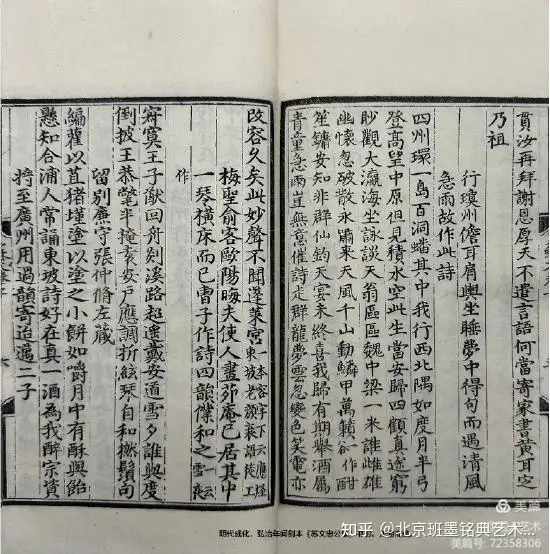 貫汝再拜謝恩厚天不遣言語何當寄家書黃耳定
乃祖
行瓊州儋耳肩輿坐睡夢中得句而遇清風
急雨故作此詩
四州環一島百洞蟠其中我行西北隅如度月半弓
登高望中原但見積水空此生當安歸四顧真途窮
眇觀大瀛海坐詠談天翁區區魏中梁一米誰雌雄
幽懷忽破散永嘯來天風千山動鱗甲萬籟谷作酣
笙鏞安知非群仙鈞天宴未終喜我歸有期舉酒屬
青童急雨豈無意催詩走群龍夢雲忽變色笑電亦
改容久矣此妙聲不聞蓬萊宮一本容字下云應怪東坡老顏衰語徒工
梅聖俞客歐陽晦夫使人畫茆庵己居其中
一琴橫床而已曹子作詩四韻僕和之一云雪夜
作
寂寞王子猷回舟剡溪路迢遙戴安道雪夕誰與度
倒披王恭氅半掩袁安戶應調折絃琴自和撚鬚句
留別廉守張仲脩左藏
編雚以苴豬墐塗以塗之小餅如嚼月中有酥與飴
懸知合浦人常誦東坡詩好在真一酒為我醉宗資
將至廣州用過韻寄迨邁二子
明代成化、弘治年间刻本《苏文忠公
美篇
知乎 @北京班墨铭典艺术...
美篇号: 72358306